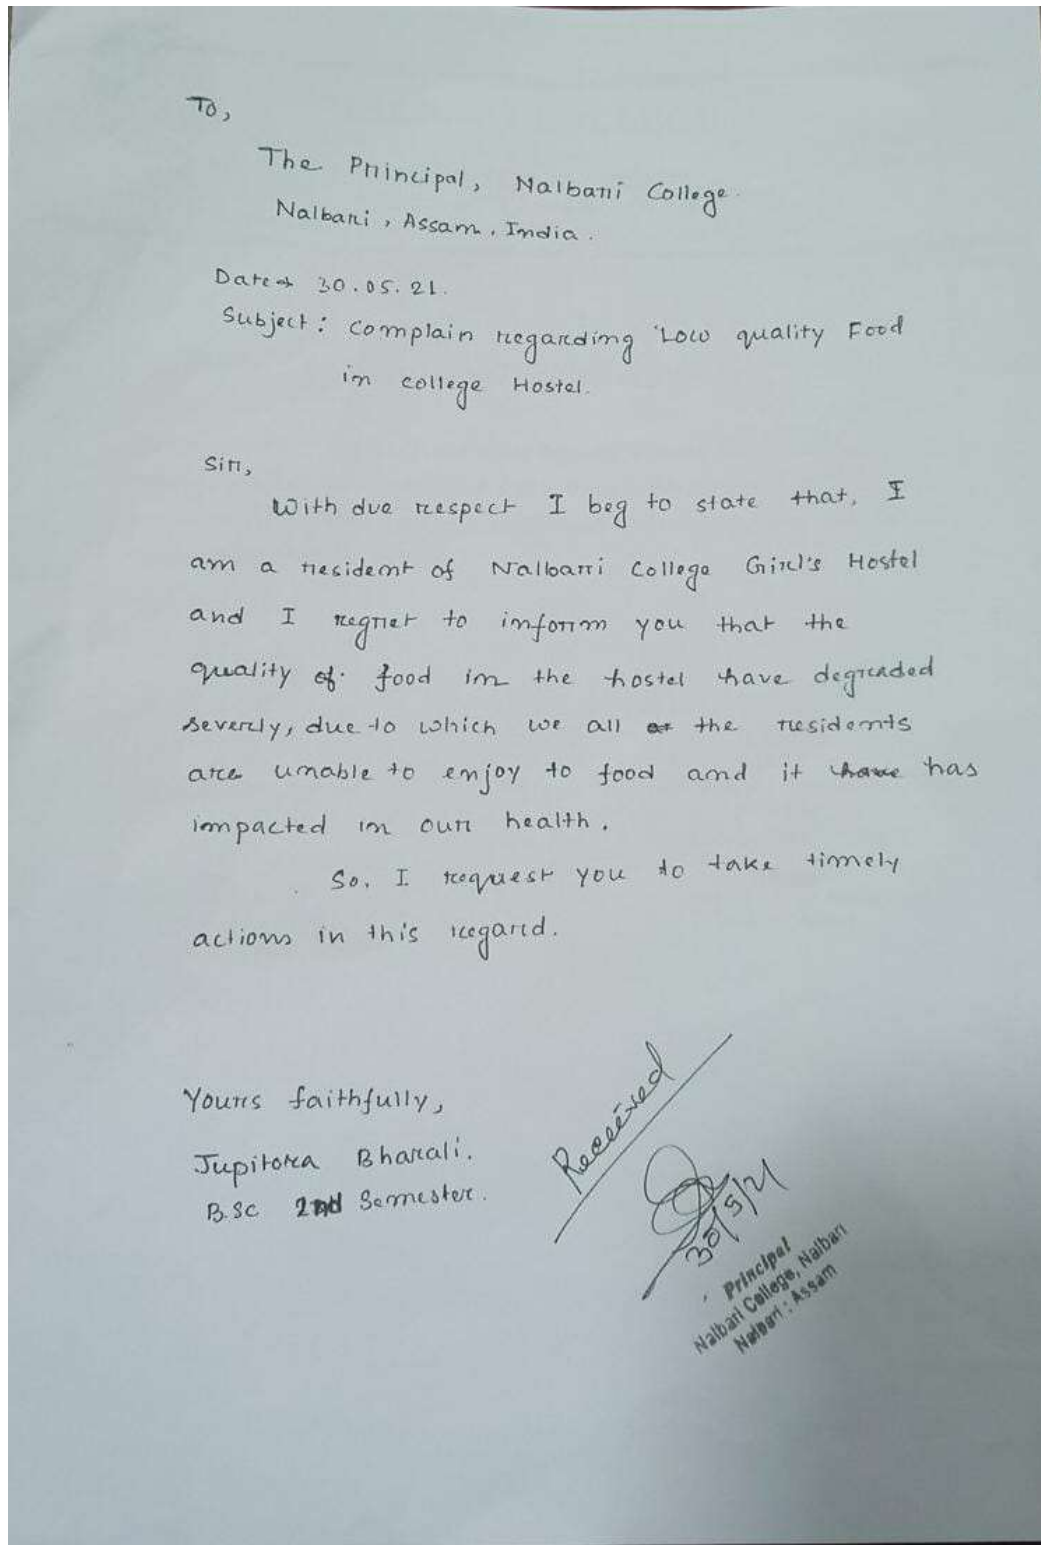 To,
The Principal, Nalbari College.
Nalbari, Assam, India.
Date→ 30.05.21.
Subject: Complain regarding Low quality Food
in college Hostel.
Sir,
With due respect I beg to state that, I
am a resident of Nalbari College Girl's Hostel
and I regret to inform you that the
quality of food in the hostel have degraded
severly, due to which we all the residents
are unable to enjoy to food and it have has
impacted in our health.
So, I request you to take timely
actions in this regard.
Yours faithfully,
Jupitora Bharali.
B.Sc 2nd Semester.
Received
30/5/21
Principal
Nalbari College, Nalbari
Nalbari : Assam